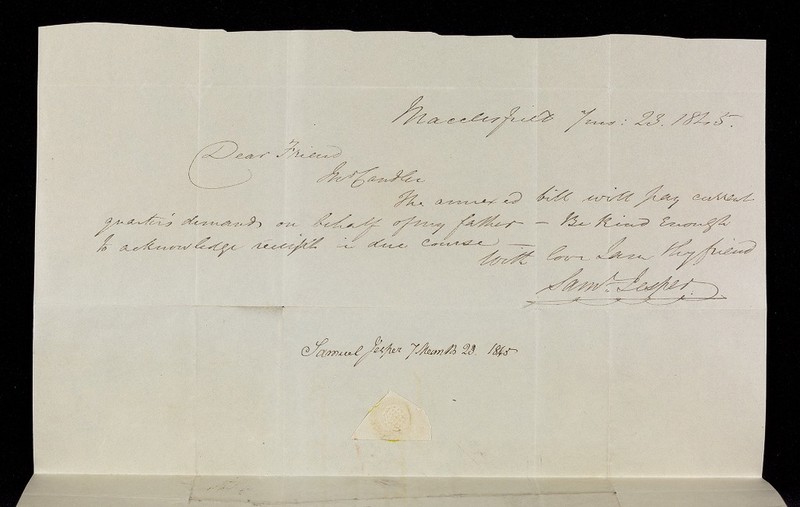 Macclesfield 7mo: 23. 1845.
Dear Friend
Jno Candler
The annexed bill will pay current
quarter's demands on behalf of my father – Be Kind Enough
to acknowledge receipth in due course
With love I am thy friend
Saml. Jesper.
Samuel Jesper 7 Month 23. 1845